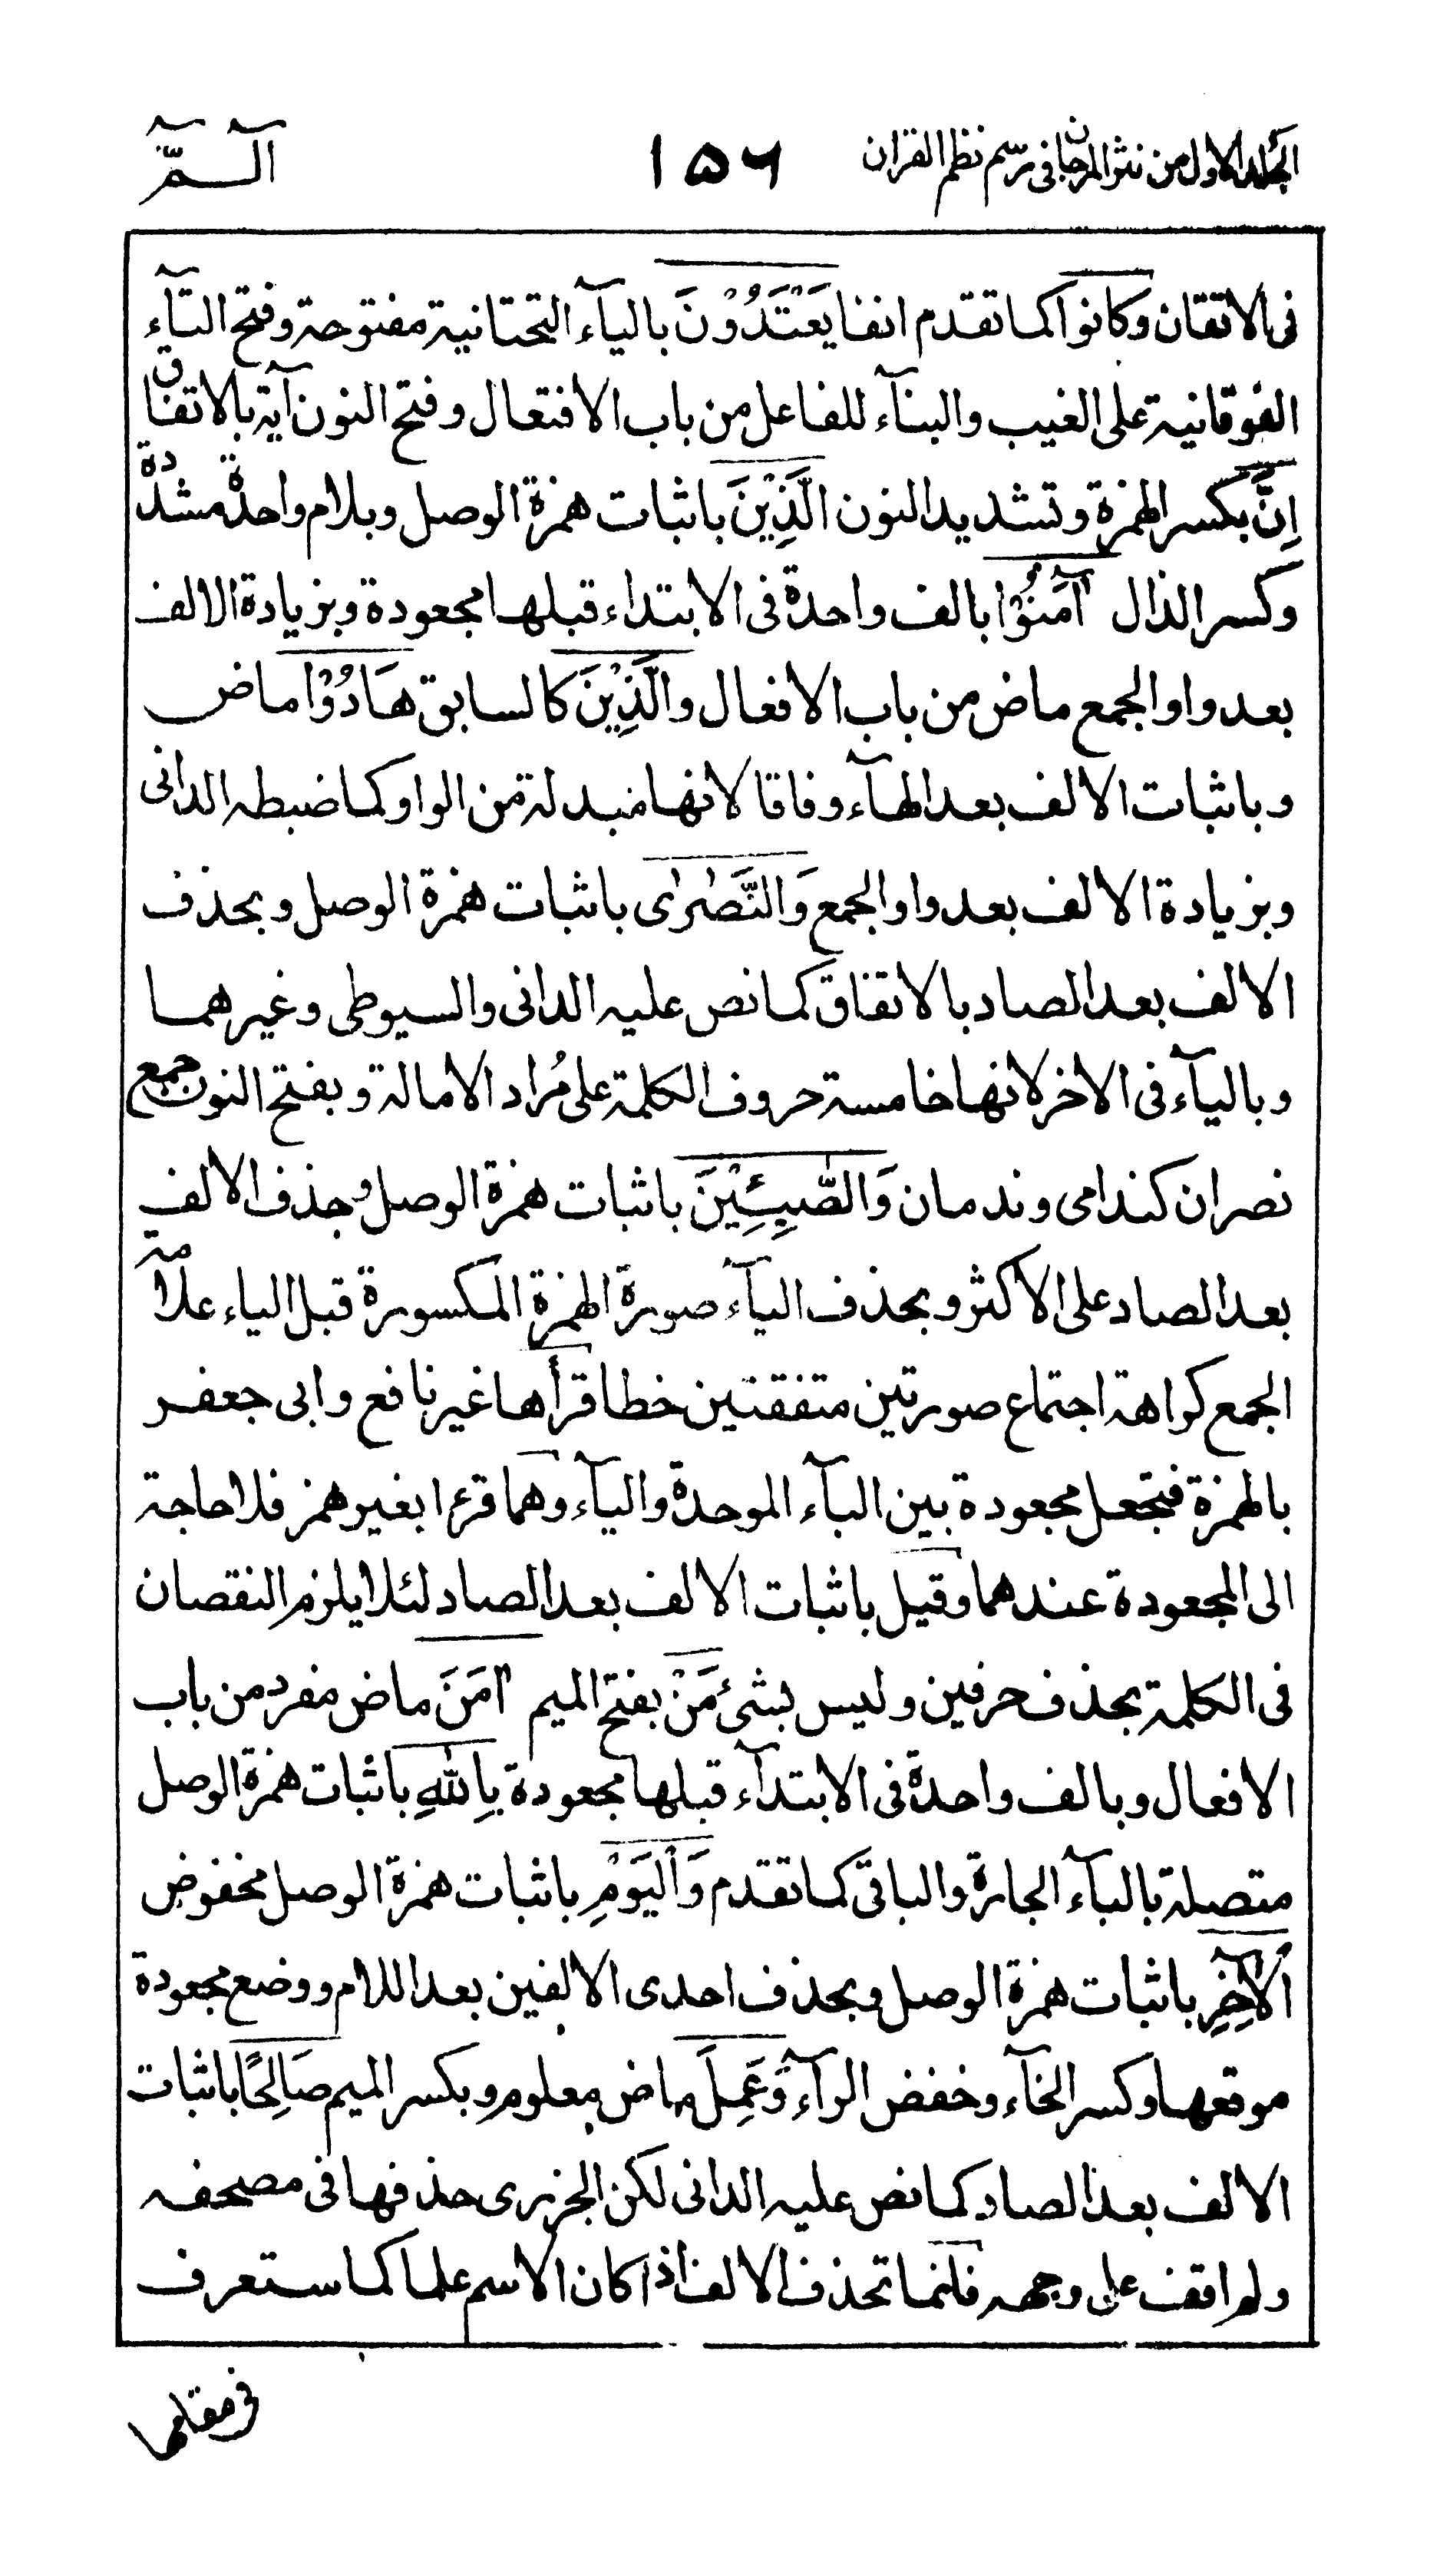 الجلد الاول من نثر المرجان فى رسم نظم القران
١٥٦
الٓــمّٓ
فى الاتقان وكانوا كما تقدم انفا يَعْتَدُوْنَ باليآء التحتانية مفتوحة وفتح التآء
الفوقانية على الغيب والبنآء للفاعل من باب الافتعال وفتح النون آية بالاتفاق
اِنَّ بكسر الهمزة وتشديد النون الَّذِيْنَ باثبات همزة الوصل وبلام واحدة مشددة
وكسر الذال اٰمَنُوْا بالف واحدة فى الابتداء قبلها مجعودة وبزيادة الالف
بعد واو الجمع ماض من باب الافعال والَّذِيْنَ كالسابق هَادُوْا ماض
وباثبات الالف بعد الهآء وفاقا لانها مبدلة من الواو كما ضبطه الدانى
وبزيادة الالف بعد واو الجمع وَالنَّصٰرٰى باثبات همزة الوصل وبحذف
الالف بعد الصاد بالاتفاق كما نص عليه الدانى والسيوطى وغيرهما
وباليآء فى الاخر لانها خامسة حروف الكلمة على مُراد الامالة وبفتح النون جمع
نصران كندامى وندمان وَالصّٰبِـِٕيْنَ باثبات همزة الوصل وبحذف الالف
بعد الصاد على الاكثر وبحذف اليآء صورة الهمزة المكسورة قبل الياء علامة
الجمع كراهة اجتماع صورتين متفقتين خطا قرأها غير نافع وابى جعفر
بالهمزة فتجعل مجعودة بين البآء الموحدة واليآء وهما قرءا بغير همز فلا حاجة
الى المجعودة عندهما وقيل باثبات الالف بعد الصاد لئلا يلزم النقصان
فى الكلمة بحذف حرفين وليس بشئ مَنْ بفتح الميم اٰمَنَ ماض مفرد من باب
الافعال وبالف واحدة فى الابتدآء قبلها مجعودة بِاللّٰهِ باثبات همزة الوصل
متصلة بالبآء الجارة والباقى كما تقدم وَالْيَوْمِ باثبات همزة الوصل مخفوض
الْاٰخِرِ باثبات همزة الوصل وبحذف احدى الالفين بعد اللام ووضع مجعودة
موقعها وكسر الخآء وخفض الرآء وَعَمِلَ ماض معلوم وبكسر الميم صَالِحًا باثبات
الالف بعد الصاد كما نص عليه الدانى لكن الجزرى حذفها فى مصحفه
ولم اقف على وجهه فانما تحذف الالف اذا كان الاسم علما كما ستعرف
فى مقامها